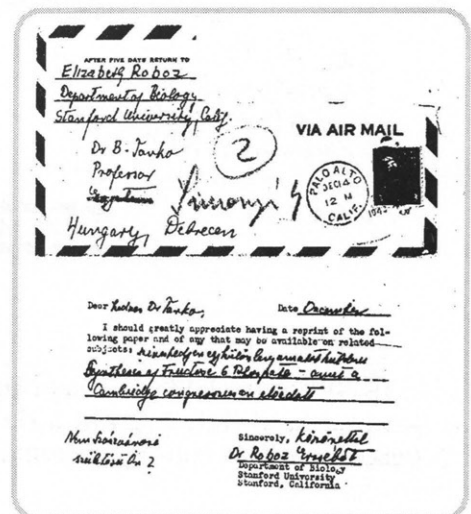 AFTER FIVE DAYS RETURN TO
Elizabeth Roboz
Department of Biology
Stanford University, Calif.
VIA AIR MAIL
Dr B. Tanko
Professor
2
Simonyi
PALO ALTO
DEC 14
12 M
CALIF.
Hungary, Debrecen
Dear Dr Tanko, Date December
I should greatly appreciate having a reprint of the fol-
lowing paper and of any that may be available on related
subjects:
Synthesis of Fructose 6 Phosphate - amit a
Cambridge congressuson előadott
Sincerely, köszönettel
Dr Roboz Erzsébet
Department of Biology
Stanford University
Stanford, California
Nem
születésű Ön ?